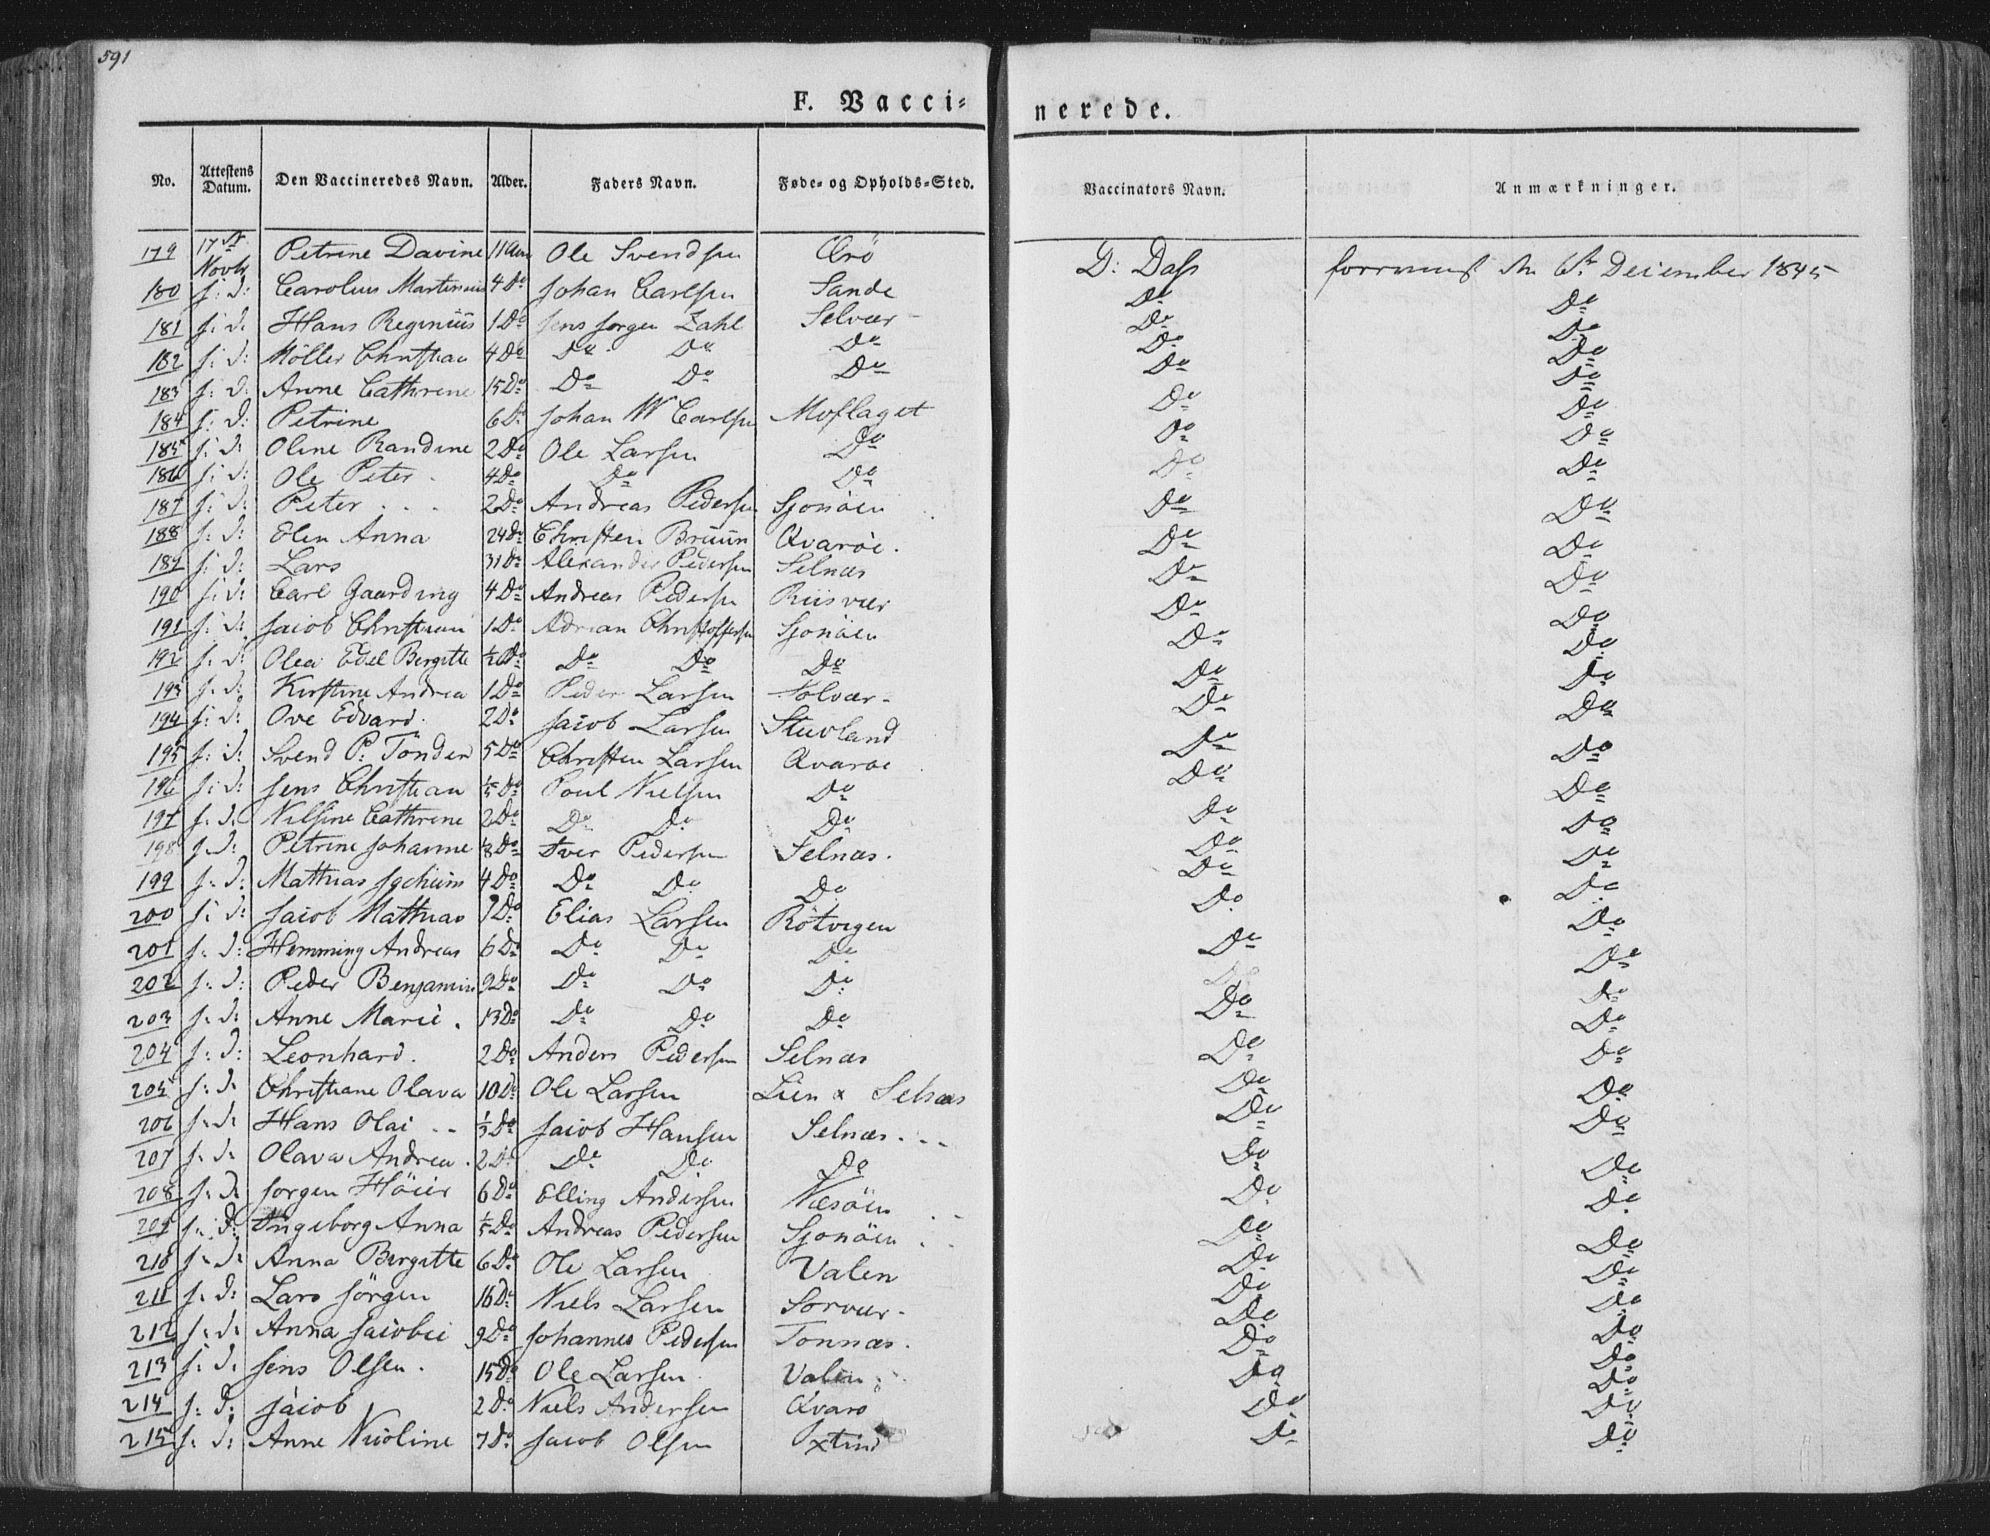 591
F. Vacci=
nerede.
No. Attestens Datum. Den Vaccineredes Navn. Alder. Faders Navn. Føde= og Opholds=Sted. Vaccinators Navn. Anmærkninger.
179 17de Novbr Petrine Davine 11 Aar Ole Svendsen D: Dass den 6te December 1845
180 s: D: Carolus 4 Do Johan Carlsen Sande Do Do
181 s: D: Hans Reginius 1 Do Jens Jørgen Zahl Selvær Do Do
182 s: D: Möller Christian 4 Do Do Do Do Do Do
183 s: D: Anne Cathrine 15 Do Do Do Do Do Do
184 s: D: Petrine 6 Do Johan W Carlsen Moflaget Do Do
185 s: D: Oline Randine 2 Do Ole Larsen Do Do Do
186 s: D: Ole Peter 4 Do Do Do Do Do
187 s: D: Peter 2 Do Andreas Pedersen Sjonöen Do Do
188 s: D: Elen Anna 24 Do Christen Bruun Qvaröe. Do Do
189 s: D: Lars 31 Do Alexander Pedersen Selnæs Do Do
190 s: D: Carl Gaarding 4 Do Andreas Pedersen Riisvær Do Do
191 s: D: Jacob Christian 1 Do Adrian Christoffersen Sjonöen Do Do
192 s: D: Olea Edel Bergitte 1/2 Do Do Do Do Do Do
193 s: D: Kirstine Andrea 1 Do Peder Larsen Do Do
194 s: D: Ove Edvard. 2 Do Jacob Larsen Stuvland Do Do
195 s: D: Svend P: Tönder 5 Do Christen Larsen Qvaröe Do Do
196 s: D: Jens Christian 1/5 Do Poul Nielsen Do Do Do
197 s: D: Nilsine Cathrine 2 Do Do Do Do Do Do
198 s: D: Petrine Johanne Do Iver Pedersen Selnæs. Do Do
199 s: D: Mathias Jochum 4 Do Do Do Do Do Do
200 s: D: Jacob Mathias Do Elias Larsen Rotvigen Do Do
201 s: D: Hemming Andreas 6 Do Do Do Do Do Do
202 s: D: Peder Benjamin 9 Do Do Do Do Do Do
203 s: D: Anne Marie. 13 Do Do Do Do Do Do
204 s: D: Leonhard. 2 Do Anders Pedersen Selnæs Do Do
205 s: D: Christiane Olava 10 Do Ole Larsen Lien x Selnæs Do Do
206 s: D: Hans Olai 1/3 Do Jacob Hansen Selnæs Do Do
207 s: D: Olava Andrea. 2 Do Do Do Do Do Do
208 s: D: Jørgen Höier 6 Do Elling Andersen Næsöen Do Do
209 s: D: Ingeborg Anna 1/5 Do Andreas Pedersen Sjonöen Do Do
210 s: D: Anna Birgitte 6 Do Ole Larsen Valen Do Do
211 s: D: Lars Jörgen 16 Do Niels Larsen Sorvær Do Do
212 s: D: Anna Jacobie 9 Do Johannes Pedersen Tonnæs. Do Do
213 s: D: Jens Olsen. 15 Do Ole Larsen Valen Do Do
214 s: D: Jacob 2 Do Niels Andersen Qvarö Do Do
215 s: D: Anne Nicoline 7 Do Jacob Olsen Do Do